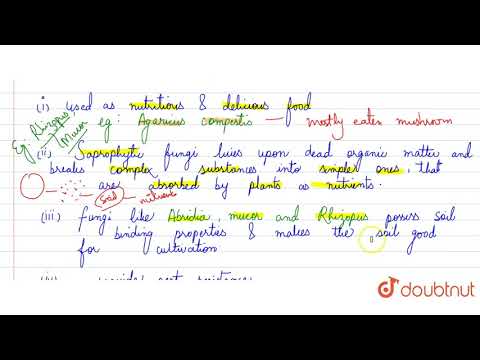 (i) used as nutritious & delicious food
eg: Agaricus compestis — mostly eaten mushroom
Eg: Rhizopus, Mucor
(ii) Saprophytic fungi lives upon dead organic matter and
breaks complex substances into simpler ones, that
are absorbed by plants as nutrients.
soil nutrients
(iii) Fungi like Absidia, mucor and Rhizopus possess soil
binding properties & makes the soil good
for cultivation
doubtnut